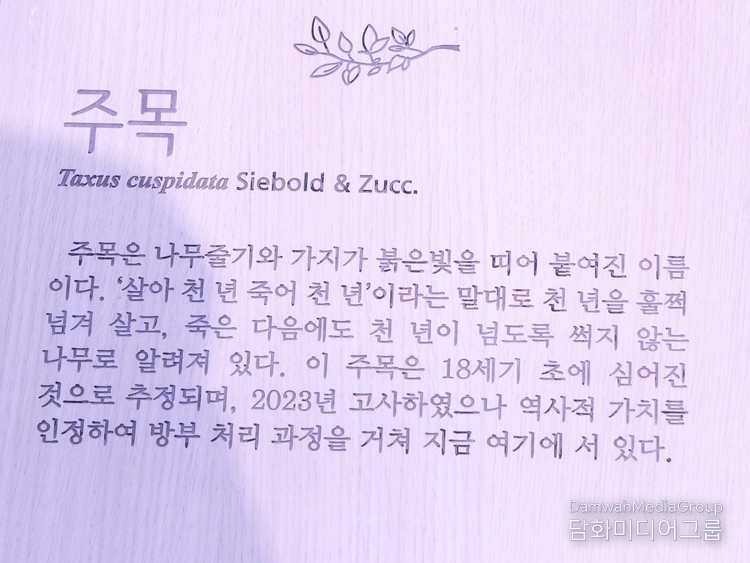 주목
Taxus cuspidata Siebold & Zucc.
주목은 나무줄기와 가지가 붉은빛을 띠어 붙여진 이름
이다. ‘살아 천 년 죽어 천 년’이라는 말대로 천 년을 훌쩍
넘겨 살고, 죽은 다음에도 천 년이 넘도록 썩지 않는
나무로 알려져 있다. 이 주목은 18세기 초에 심어진
것으로 추정되며, 2023년 고사하였으나 역사적 가치를
인정하여 방부 처리 과정을 거쳐 지금 여기에 서 있다.
DamwahMediaGroup
담화미디어그룹